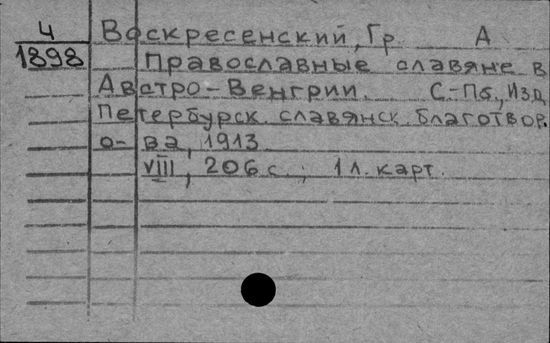 Ч
1898
Воскресенский, Гр А
Православные славяне в
Австро-Венгрии. С.-Пб., Изд
Петербурск. славянск. благотвор.
о-ва, 1913.
VIII, 206 с., 1 л. карт.